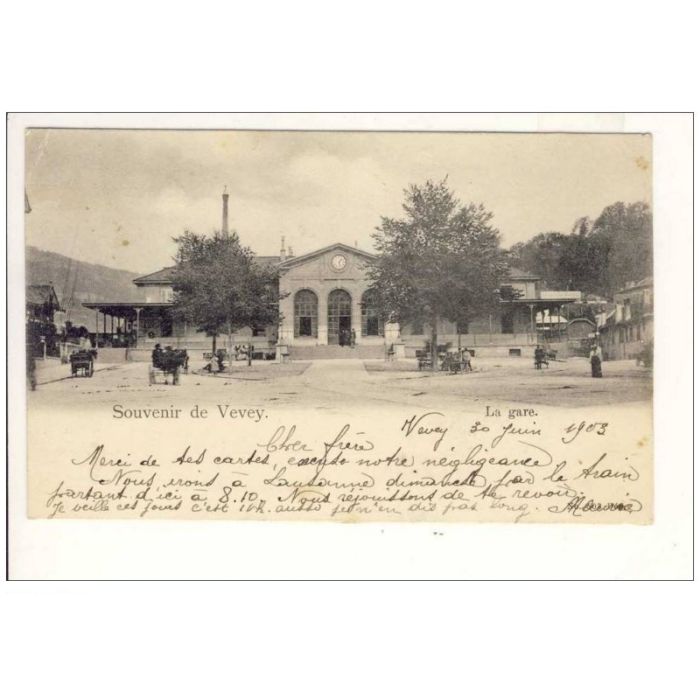 Souvenir de Vevey.
La gare.
Vevey 30 Juin 1903
Cher frère
Merci de tes cartes, excuse notre négligeance
Nous irons à Lausanne dimanche par le train
partant d'ici à 8.10. Nous réjouissons de te revoir.
Je veille ces jours c'est aussi je n'en dis pas long.